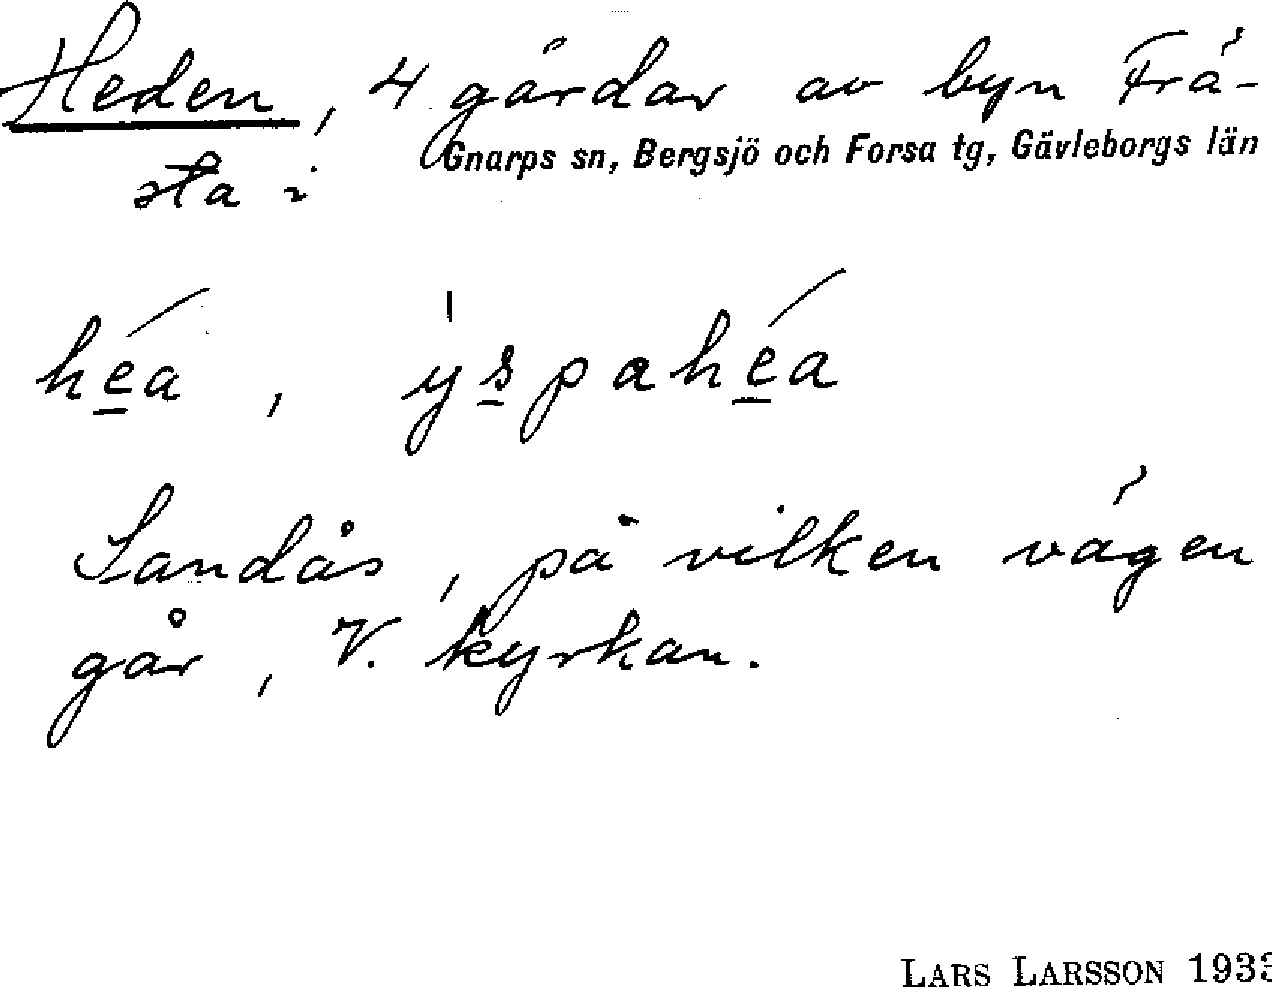 Heden, 4 gårdar av byn Frä-
Gnarps sn, Bergsjö och Forsa tg, Gävleborgs län
sta i
héa, ýspahéa
Sandås, på vilken vägen
går, V. kyrkan.
LARS LARSSON 1933